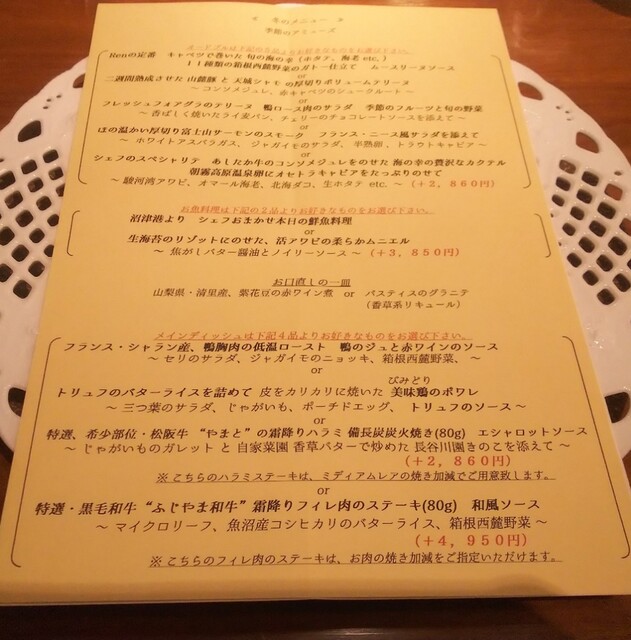 冬のメニュー
季節のアミューズ
オードブルは下記の5品よりお好きなものをお選び下さい。
Renの定番 キャベツで巻いた 旬の海の幸(ホタテ、海老 etc.)
11種類の箱根西麓野菜のガトー仕立て ムースリーヌソース
or
二週間熟成させた 山麓豚 と 天城シャモ の厚切りボリュームテリーヌ
~ コンソメジュレ、赤キャベツのシュークルート ~
or
フレッシュフォアグラのテリーヌ 鴨ロース肉のサラダ 季節のフルーツと旬の野菜
~ 香ばしく焼いたライ麦パン、チェリーのチョコレートソースを添えて ~
or
ほの温かい厚切り富士山サーモンのスモーク フランス・ニース風サラダを添えて
~ ホワイトアスパラガス、ジャガイモのサラダ、半熟卵、トラウトキャビア ~
or
シェフのスペシャリテ あしたか牛のコンソメジュレをのせた 海の幸の贅沢なカクテル
朝霧高原温泉卵にオセトラキャビアをたっぷりのせて
~ 駿河湾アワビ、オマール海老、北海ダコ、生ホタテ etc. ~ (+2,860円)
お魚料理は下記の2品よりお好きなものをお選び下さい。
沼津港より シェフおまかせ本日の鮮魚料理
or
生海苔のリゾットにのせた、活アワビの柔らかムニエル
~ 焦がしバター醤油とノイリーソース ~ (+3,850円)
お口直しの一皿
山梨県・清里産、紫花豆の赤ワイン煮 or パスティスのグラニテ
(香草系リキュール)
メインディッシュは下記4品よりお好きなものをお選び下さい。
フランス・シャラン産、鴨胸肉の低温ロースト 鴨のジュと赤ワインのソース
~ セリのサラダ、ジャガイモのニョッキ、箱根西麓野菜、 ~
or
びみどり
トリュフのバターライスを詰めて 皮をカリカリに焼いた 美味鶏のポワレ
~ 三つ葉のサラダ、じゃがいも、ポーチドエッグ、 トリュフのソース ~
or
特選、希少部位・松阪牛 “やまと”の霜降りハラミ 備長炭炭火焼き(80g) エシャロットソース
~ じゃがいものガレット と 自家菜園 香草バターで炒めた 長谷川園きのこを添えて ~
(+2,860円)
※ こちらのハラミステーキは、ミディアムレアの焼き加減でご用意致します。
or
特選・黒毛和牛 “ふじやま和牛” 霜降りフィレ肉のステーキ(80g) 和風ソース
~ マイクロリーフ、魚沼産コシヒカリのバターライス、箱根西麓野菜 ~
(+4,950円)
※ こちらのフィレ肉のステーキは、お肉の焼き加減をご指定いただけます。